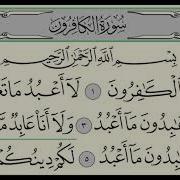 سُورَةُ الكَافِرُون
بِسْمِ ٱللَّهِ ٱلرَّحْمَٰنِ ٱلرَّحِيمِ
ٱلْكَٰفِرُونَ ١ لَآ أَعْبُدُ مَا تَعْ
َٰبِدُونَ مَآ أَعْبُدُ ٣ وَلَآ أَنَا۠ عَابِدٌ مَّ
َٰبِدُونَ مَآ أَعْبُدُ ٥ لَكُمْ دِينُكُ